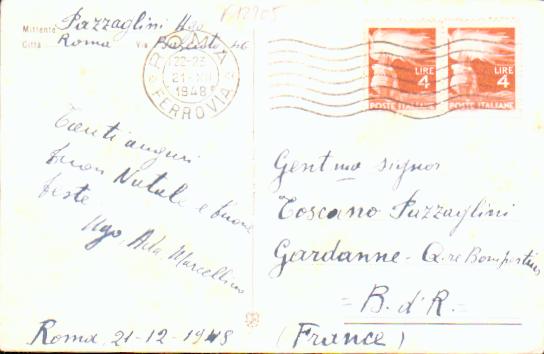 F12905
Mittente Pazzaglini Ugo
Città Roma Via 46
ROMA FERROVIA
22-23
21-XII
1948
LIRE 4
POSTE ITALIANE
LIRE 4
POSTE ITALIANE
Tanti auguri
buon Natale e buone
feste
Ugo, Ada, Marcellino
Roma, 21-12-1948
Gent mo signor
Toscano Pazzaglini
Gardanne -
= B. d' R. =
(France)